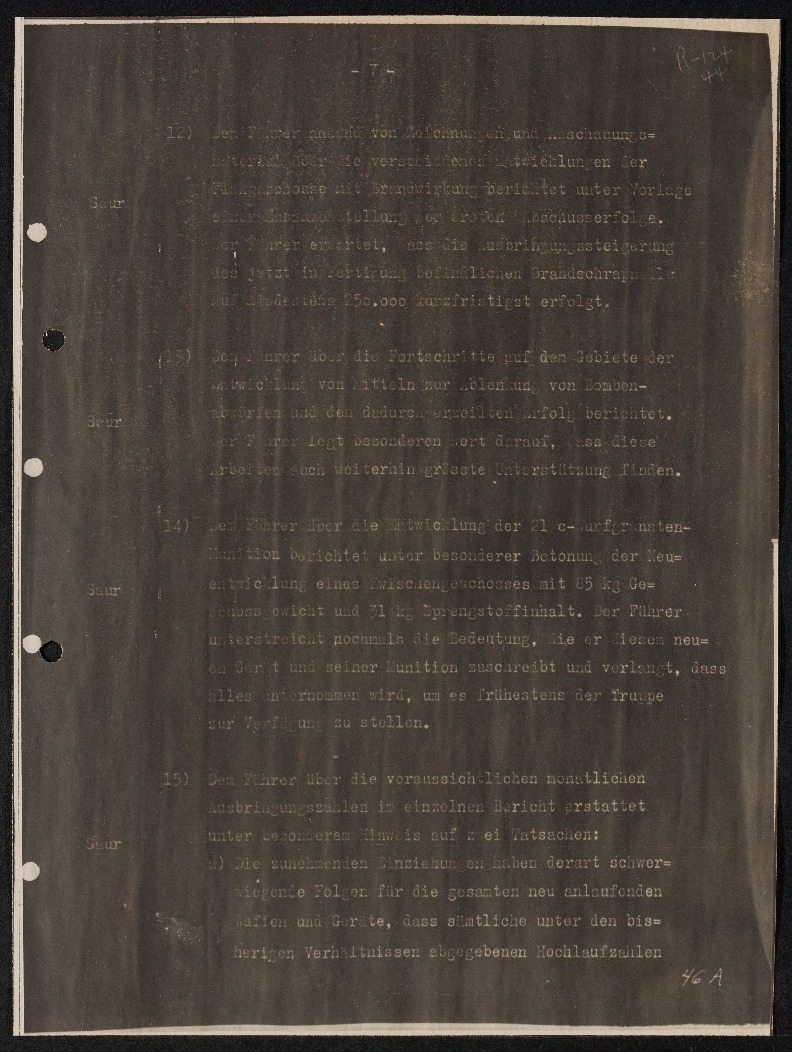 R-124
44
- 7 -
12) Dem Führer anhand von Zeichnungen und Anschauungs=
material über die verschiedenen Entwicklungen der
Flakgeschosse mit Brandwirkung berichtet unter Vorlage
Saur
einer Zusammenstellung der ersten Abschusserfolge.
Der Führer erwartet, dass die Ausbringungssteigerung
der jetzt in Fertigung befindlichen Brandschrapnelle
auf mindestens 250.000 kurzfristigst erfolgt.
13) Dem Führer über die Fortschritte auf dem Gebiete der
Entwicklung von Mitteln zur Ablenkung von Bomben-
Saur
abwürfen und den dadurch erzeilten Erfolg berichtet.
Der Führer legt besonderen Wert darauf, dass diese
Arbeiten auch weiterhin grösste Unterstützung finden.
14) Dem Führer über die Entwicklung der 21 c-Wurfgranaten-
Munition berichtet unter besonderer Betonung der Neu=
Saur
entwicklung eines Zwischengeschosses mit 85 kg Ge=
schossgewicht und 31 kg Sprengstoffinhalt. Der Führer
unterstreicht nochmals die Bedeutung, die er diesem neu=
en Gerät und seiner Munition zuschreibt und verlangt, dass
alles unternommen wird, um es frühestens der Truppe
zur Verfügung zu stellen.
15) Dem Führer über die voraussichtlichen monatlichen
Ausbringungszahlen im einzelnen Bericht erstattet
unter besonderem Hinweis auf zwei Tatsachen:
Saur
a) Die zunehmenden Einziehungen haben derart schwer=
wiegende Folgen für die gesamten neu anlaufenden
Waffen und Geräte, dass sämtliche unter den bis=
herigen Verhältnissen abgegebenen Hochlaufzahlen
46 A